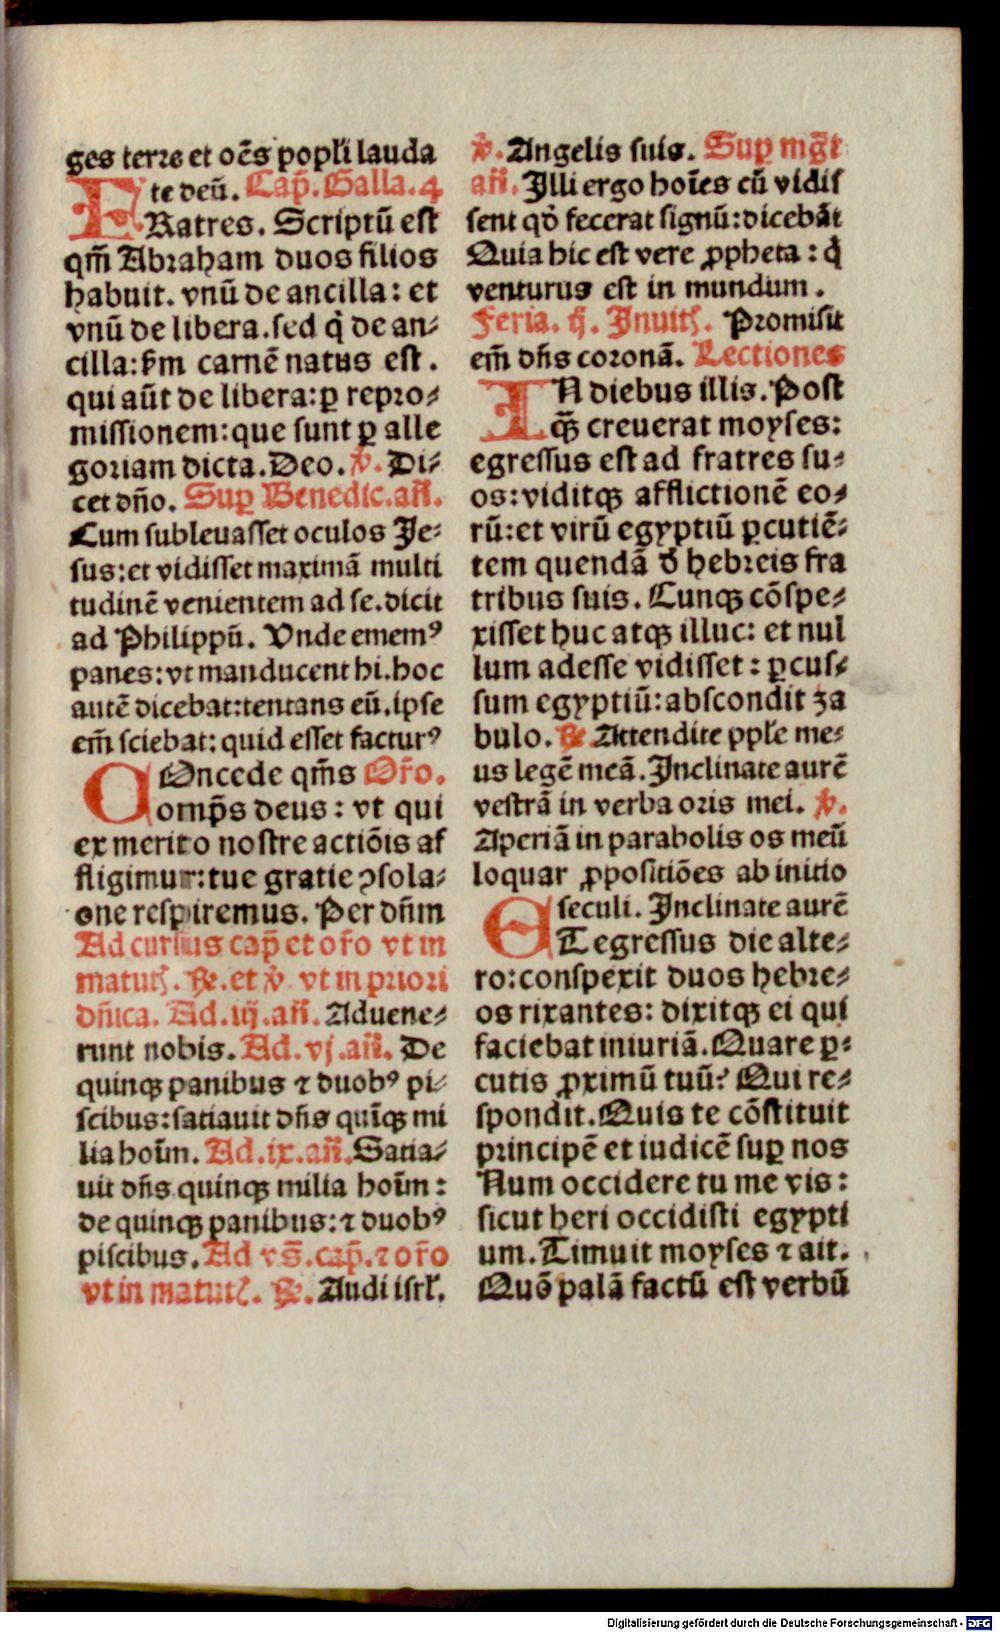 ges terre et oēs popłi lauda
te deū. Cap̄. Galla. 4
FRatres. Scriptū est
qm̄ Abraham duos filios
habuit. vnū de ancilla: et
vnū de libera. sed q̇ de an-
cilla: ẜm carnē natus est.
qui aūt de libera: ꝑ repro-
missionem: que sunt ꝑ alle
goriam dicta. Deo. ꝟ. Di-
cet dn̄o. Suꝑ Benedic. an̄.
Cum subleuasset oculos Je-
sus: et vidisset maximā multi
tudinē venientem ad se. dicit
ad Philippū. Vnde ememꝰ
panes: vt manducent hi. hoc
autē dicebat: tentans eū. ipse
em̄ sciebat: quid esset facturꝰ
COncede qm̄s Or̄o.
omp̄s deus: vt qui
ex merito nostre actiōis af
fligimur: tue gratie ꝯsola-
one respiremus. Per dn̄m
Ad cursus cap̄ et or̄o vt in
matutꝭ. ꝶ. et ꝟ vt in priori
dn̄ica. Ad. iij. an̄. Aduene-
runt nobis. Ad. vj. an̄. De
quinqꝫ panibus ⁊ duobꝰ pi-
scibus: satiauit dn̄s quīqꝫ mi
lia hoīm. Ad. ix. an̄. Satia-
uit dn̄s quinqꝫ milia hoīm:
de quinqꝫ panibus: ⁊ duobꝰ
piscibus. Ad vs̄. cap̄. ⁊ or̄o
vt in matutꝭ. ꝶ. Audi isrł.
ꝟ. Angelis suis. Suꝑ mḡt
an̄. Illi ergo hoīes cū vidis
sent qđ fecerat signū: dicebāt
Quia hic est vere ꝓpheta: q̇
venturus est in mundum.
Feria. ij. Inuitꝭ. Promisit
em̄ dn̄s coronā. Lectiones
IN diebus illis. Post
qꝫ̄ creuerat moyses:
egressus est ad fratres su-
os: viditqꝫ afflictionē eo-
rū: et virū egyptiū ꝑcutiē-
tem quendā đ hebreis fra
tribus suis. Cunqꝫ cōspe-
xisset huc atqꝫ illuc: et nul
lum adesse vidisset: ꝑcus-
sum egyptiū: abscondit za
bulo. ꝶ Attendite pple me-
us legē meā. Inclinate aurē
vestrā in verba oris mei. ꝟ.
Aperiā in parabolis os meū
loquar ꝓpositiōes ab initio
seculi. Inclinate aurē
ET egressus die alte-
ro: conspexit duos hebre-
os rixantes: dixitqꝫ ei qui
faciebat iniuriā. Quare ꝑ-
cutis ꝓximū tuū? Qui re-
spondit. Quis te cōstituit
principē et iudicē suꝑ nos
Num occidere tu me vis:
sicut heri occidisti egypti
um. Timuit moyses ⁊ ait.
Quō palā factū est verbū
Digitalisierung gefördert durch die Deutsche Forschungsgemeinschaft - DFG